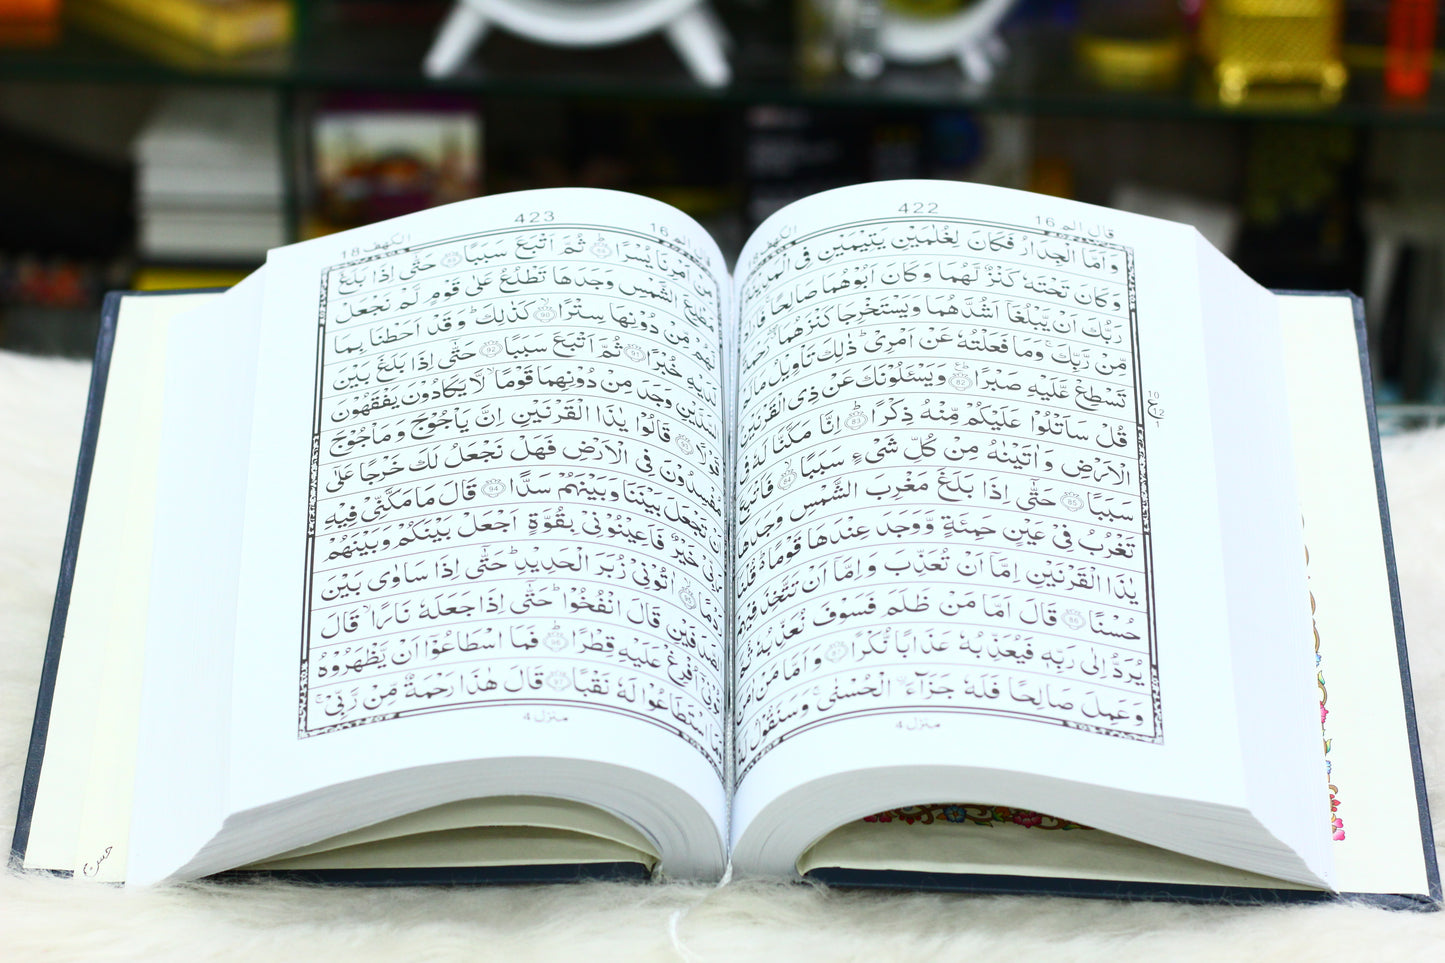 قال الم 16
422
الكهف 18
وَاَمَّا الْجِدَارُ فَكَانَ لِغُلٰمَيْنِ يَتِيْمَيْنِ فِى الْمَدِيْنَةِ
وَكَانَ تَحْتَهٗ كَنْزٌ لَّهُمَا وَكَانَ اَبُوْهُمَا صَالِحًا ۚ فَاَرَادَ
رَبُّكَ اَنْ يَّبْلُغَاۤ اَشُدَّهُمَا وَيَسْتَخْرِجَا كَنْزَهُمَا ۖ رَحْمَةً
مِّنْ رَّبِّكَ ۚ وَمَا فَعَلْتُهٗ عَنْ اَمْرِىْ ؕ ذٰلِكَ تَاْوِيْلُ مَا لَمْ
تَسْطِعْ عَّلَيْهِ صَبْرًا 82 وَيَسْـَٔلُوْنَكَ عَنْ ذِى الْقَرْنَيْنِ
قُلْ سَاَتْلُوْا عَلَيْكُمْ مِّنْهُ ذِكْرًا 83 اِنَّا مَكَّنَّا لَهٗ فِى
الْاَرْضِ وَاٰتَيْنٰهُ مِنْ كُلِّ شَىْءٍ سَبَبًا 84 فَاَتْبَعَ
سَبَبًا 85 حَتّٰۤى اِذَا بَلَغَ مَغْرِبَ الشَّمْسِ وَجَدَهَا
تَغْرُبُ فِىْ عَيْنٍ حَمِئَةٍ وَّوَجَدَ عِنْدَهَا قَوْمًا ؕ قُلْنَا
يٰذَا الْقَرْنَيْنِ اِمَّاۤ اَنْ تُعَذِّبَ وَاِمَّاۤ اَنْ تَتَّخِذَ فِيْهِمْ
حُسْنًا 86 قَالَ اَمَّا مَنْ ظَلَمَ فَسَوْفَ نُعَذِّبُهٗ ثُمَّ
يُرَدُّ اِلٰى رَبِّهٖ فَيُعَذِّبُهٗ عَذَابًا نُّكْرًا 87 وَاَمَّا مَنْ اٰمَنَ
وَعَمِلَ صَالِحًا فَلَهٗ جَزَآءَ ۨالْحُسْنٰى ۚ وَسَنَقُوْلُ لَهٗ
منزل 4
10
ع
12
1
قال الم 16
423
الكهف 18
مِنْ اَمْرِنَا يُسْرًا 88 ثُمَّ اَتْبَعَ سَبَبًا 89 حَتّٰۤى اِذَا بَلَغَ
مَطْلِعَ الشَّمْسِ وَجَدَهَا تَطْلُعُ عَلٰى قَوْمٍ لَّمْ نَجْعَلْ
لَّهُمْ مِّنْ دُوْنِهَا سِتْرًا 90 كَذٰلِكَ ؕ وَقَدْ اَحَطْنَا بِمَا
لَدَيْهِ خُبْرًا 91 ثُمَّ اَتْبَعَ سَبَبًا 92 حَتّٰۤى اِذَا بَلَغَ بَيْنَ
السَّدَّيْنِ وَجَدَ مِنْ دُوْنِهِمَا قَوْمًا ۙ لَّا يَكَادُوْنَ يَفْقَهُوْنَ
قَوْلًا 93 قَالُوْا يٰذَا الْقَرْنَيْنِ اِنَّ يَاْجُوْجَ وَمَاْجُوْجَ
مُفْسِدُوْنَ فِى الْاَرْضِ فَهَلْ نَجْعَلُ لَكَ خَرْجًا عَلٰۤى
اَنْ تَجْعَلَ بَيْنَنَا وَبَيْنَهُمْ سَدًّا 94 قَالَ مَا مَكَّنِّىْ فِيْهِ
رَبِّىْ خَيْرٌ فَاَعِيْنُوْنِىْ بِقُوَّةٍ اَجْعَلْ بَيْنَكُمْ وَبَيْنَهُمْ
رَدْمًا 95 اٰتُوْنِىْ زُبَرَ الْحَدِيْدِ ؕ حَتّٰۤى اِذَا سَاوٰى بَيْنَ
الصَّدَفَيْنِ قَالَ انْفُخُوْا ؕ حَتّٰۤى اِذَا جَعَلَهٗ نَارًا ۙ قَالَ
اٰتُوْنِىْۤ اُفْرِغْ عَلَيْهِ قِطْرًا 96 فَمَا اسْطَاعُوْۤا اَنْ يَّظْهَرُوْهُ
وَمَا اسْتَطَاعُوْا لَهٗ نَقْبًا 97 قَالَ هٰذَا رَحْمَةٌ مِّنْ رَّبِّىْ ۚ
منزل 4